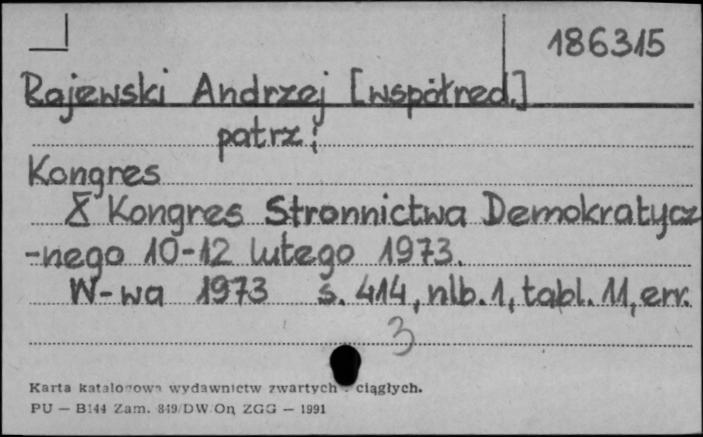 186315
Rajewski Andrzej [współred.]
patrz:
Kongres
X Kongres Stronnictwa Demokratycz
-nego 10-12 lutego 1973.
W-wa 1973 s. 414, nlb. 1, tabl. 11, err.
3
Karta katalogowa wydawnictw zwartych i ciągłych.
PU — B144 Zam. 849/DW/On ZGG — 1991